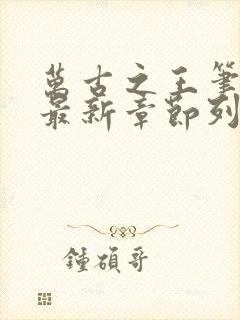 萬古之王筆
最新章節列
鍾碩哥